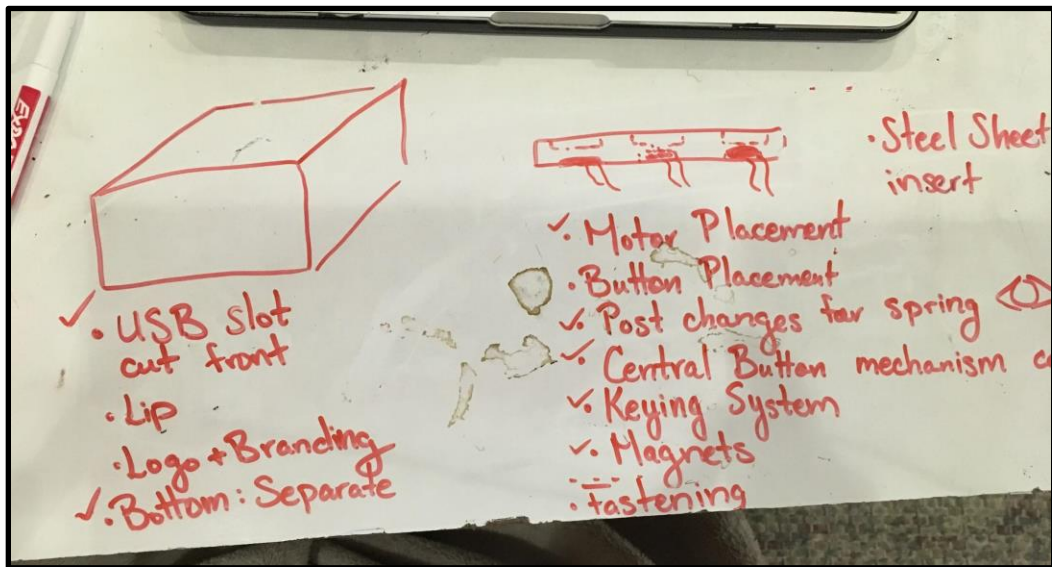 EXPO
✓ • USB slot
cut front
• Lip
• Logo + Branding
✓ • Bottom: Separate
✓ • Motor Placement
• Button Placement
✓ • Post changes for spring
✓ • Central Button mechanism
✓ • Keying System
✓ • Magnets
• Fastening
• Steel Sheet
insert